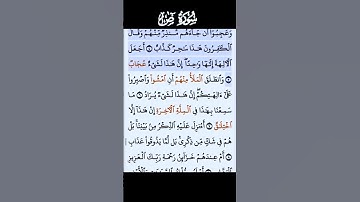 سورة ص
وَعَجِبُوٓا۟ أَن جَآءَهُم مُّنذِرٌ مِّنْهُمْ وَقَالَ
ٱلْكَٰفِرُونَ هَٰذَا سَٰحِرٌ كَذَّابٌ ۝ أَجَعَلَ
ٱلْءَالِهَةَ إِلَٰهًا وَٰحِدًا إِنَّ هَٰذَا لَشَىْءٌ عُجَابٌ
۝ وَٱنطَلَقَ ٱلْمَلَأُ مِنْهُمْ أَنِ ٱمْشُوا۟ وَٱصْبِرُوا۟
عَلَىٰٓ ءَالِهَتِكُمْ إِنَّ هَٰذَا لَشَىْءٌ يُرَادُ ۝ مَا
سَمِعْنَا بِهَٰذَا فِى ٱلْمِلَّةِ ٱلْءَاخِرَةِ إِنْ هَٰذَآ إِلَّا
ٱخْتِلَٰقٌ ۝ أَءُنزِلَ عَلَيْهِ ٱلذِّكْرُ مِنۢ بَيْنِنَا بَلْ
هُمْ فِى شَكٍّ مِّن ذِكْرِى بَل لَّمَّا يَذُوقُوا۟ عَذَابِ ۝
أَمْ عِندَهُمْ خَزَآئِنُ رَحْمَةِ رَبِّكَ ٱلْعَزِيزِ